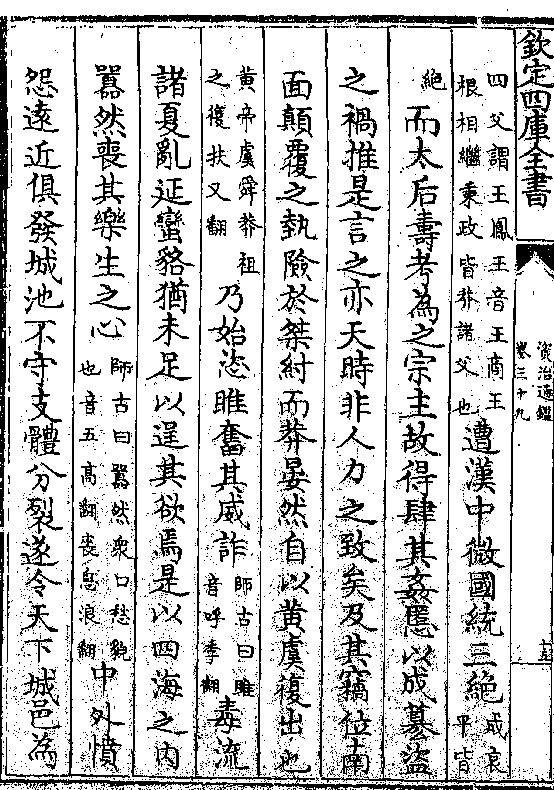 欽定四庫全書
資治通鑑
卷三十九
四父謂王鳳王音王商王
根相繼秉政皆莽諸父也
遭漢中微國統三絕
成哀
平皆
絕
而太后壽考為之宗主故得肆其姦慝以成簒盜
之禍推是言之亦天時非人力之致矣及其竊位南
面顛覆之埶險於桀紂而莽晏然自以黄虞復出也
黄帝虞舜莽祖
之復扶又翻
乃始恣睢奮其威詐
師古曰睢
音呼季翻
毒流
諸夏亂延蠻貉猶未足以逞其欲焉是以四海之内
囂然喪其樂生之心
師古曰囂然衆口愁貌
也音五高翻喪息浪翻
中外憤
怨遠近俱發城池不守支體分裂遂令天下城邑為